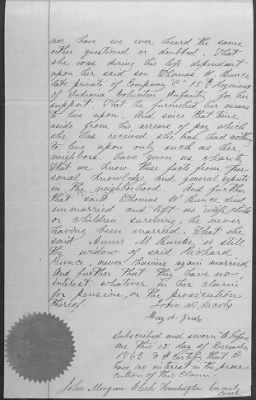 nor have we ever heard the same
either questioned or doubted. That
she was during his life dependant
upon her said son Thomas W. Kunce
late private of Company "C" 15th Regiment
of Indiana Volunteer Infantry for her
support. That he furnished her means
to live upon. And since that time
aside from the arrears of pay which
she has received she has had nothing
to live upon only such as her
neighbors have given as charity.
That we know these facts from per-
sonal knowledge and general repute
in the neighborhood. And further
that said Thomas W. Kunce died
unmarried and left no wife, child
or children surviving, he never
having been married. That she
said M Kunce is still
the widow of said Richard
Kunce never having again married
And further that they have no
interest whatever in her claim
for pension, or the prosecution
thereof
John
Mary A.
Subscribed and sworn to before
me this 12 day of December
186 & I certify that I
have no interest in the prose-
cution of this claim
John Morgan Clerk Huntington Circuit
Court